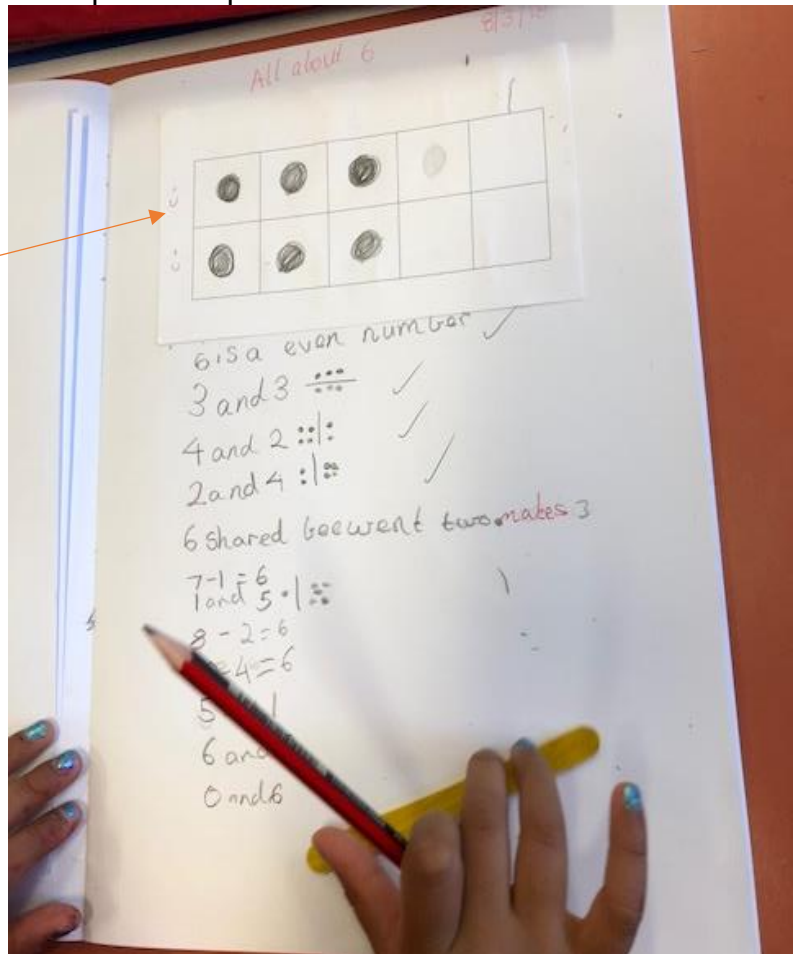 All about 6
6 is a even number
3 and 3
4 and 2
2 and 4
6 shared beewent two makes 3
7-1=6
1 and 5
8-2=6
4=6
5 1
6 and
0 and 6